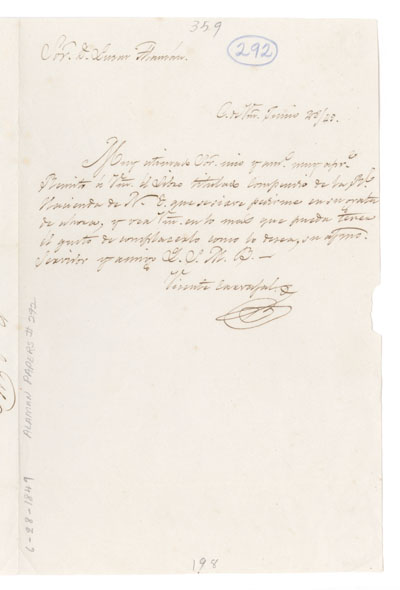 359
292
Sor. D. Lucas Alamán.
C. de Vm. Junio 28/49.
Muy estimado Sor. mio y am.º muy apr.
Remito á Vm. el Libro titulado Compendio de la Rl.
Hacienda de N. E. que se sirve pedirme en su grata
de ahora, y vea Vm. en lo más que pueda tener
el gusto de complacerlo como lo desea, su afmo.
Servidor y amigo Q. S. M. B.
Vicente Carvajal
198
6-28-1849 ALAMÁN PAPERS # 292